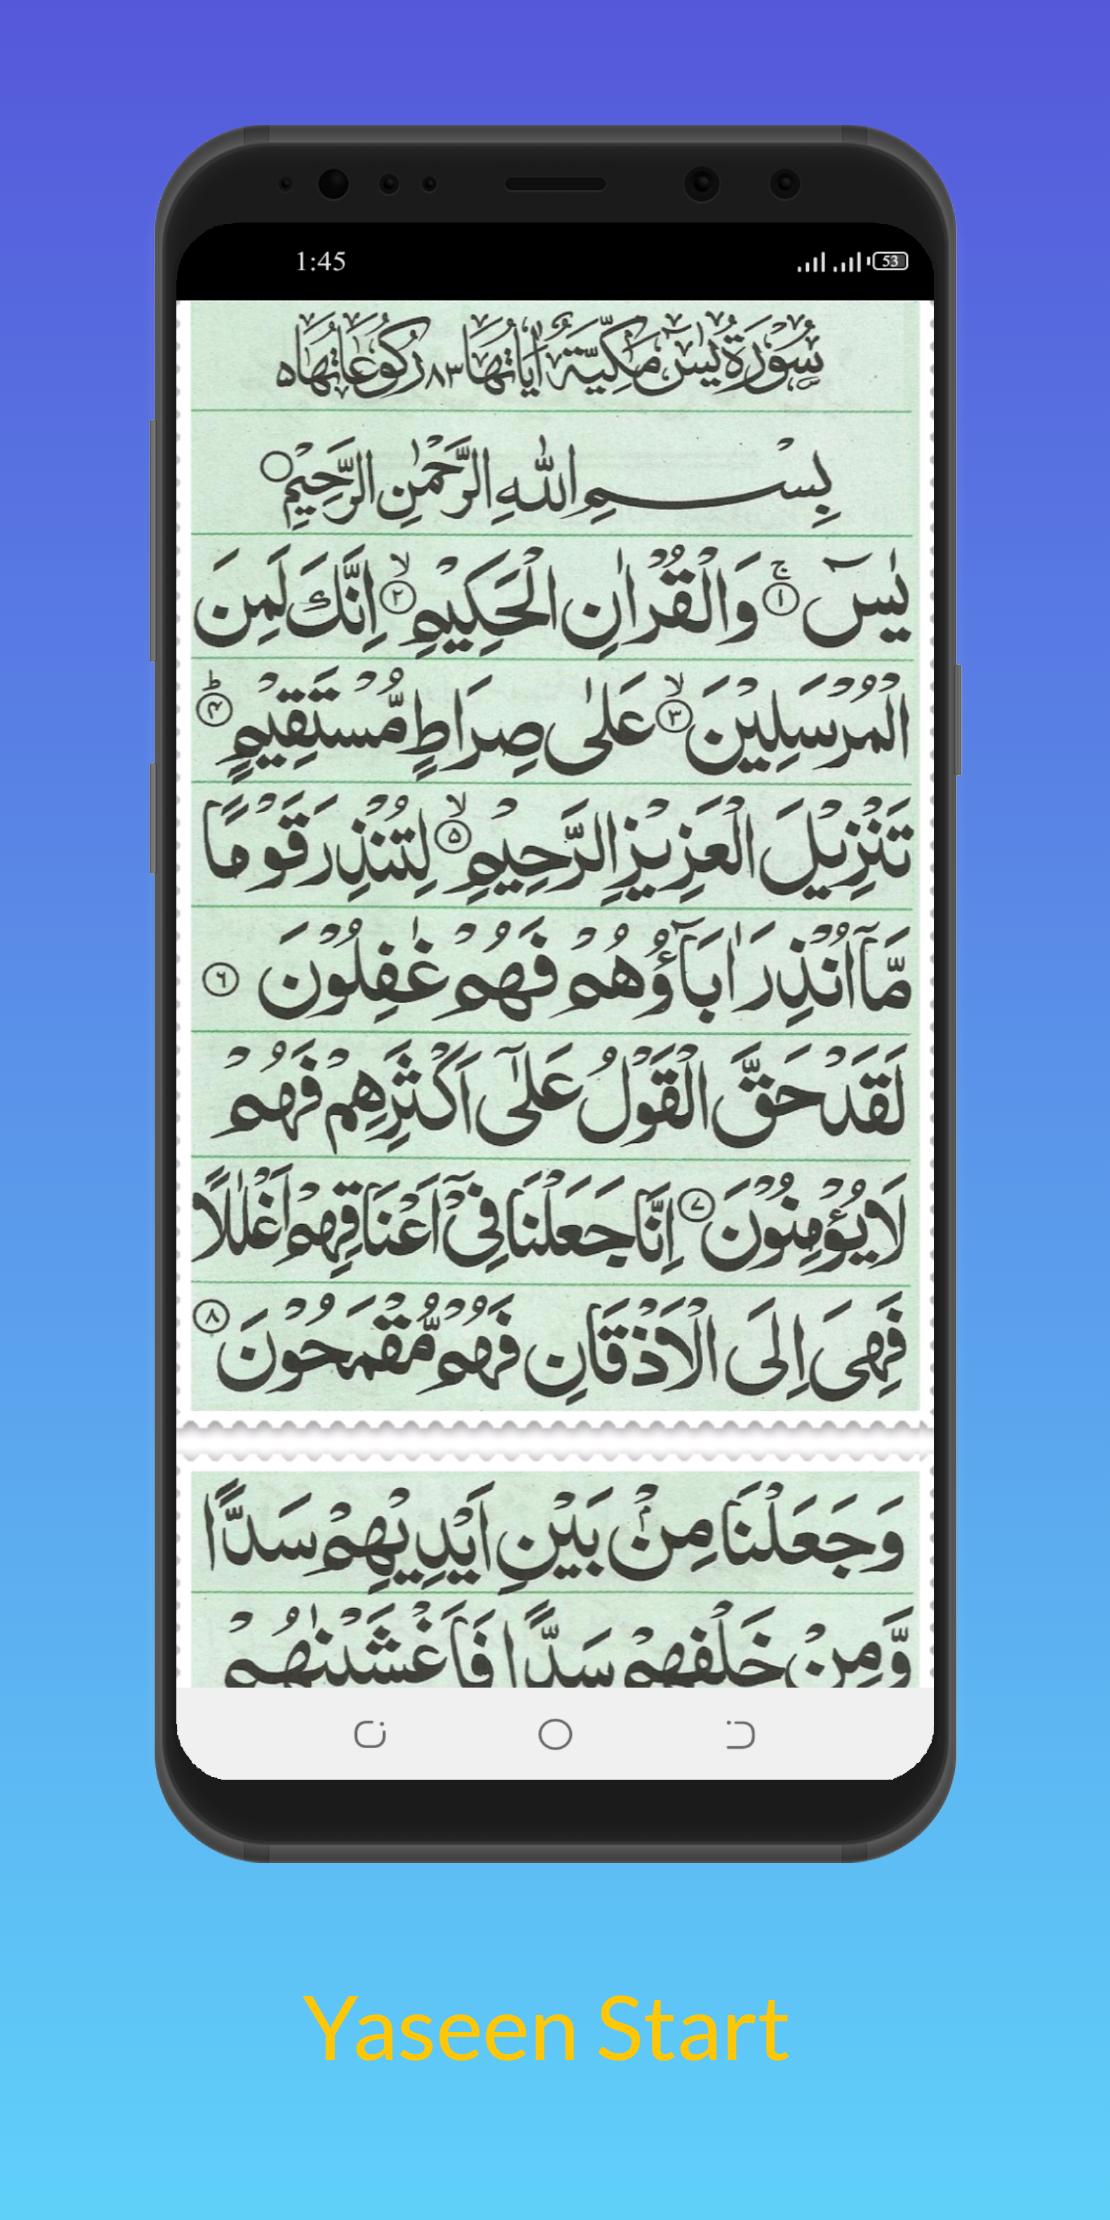 1:45
53
سُوْرَةُ يٰسٓ مَكِّيَّةٌ اٰيَاتُهَا ۸۳ رُكُوْعَاتُهَا ۵
بِسْمِ اللّٰهِ الرَّحْمٰنِ الرَّحِيْمِ ○
يٰسٓ ۚ‏﴿۱﴾ وَالْقُرْاٰنِ الْحَكِيْمِ ۙ‏﴿۲﴾ اِنَّكَ لَمِنَ
الْمُرْسَلِيْنَ ۙ‏﴿۳﴾ عَلٰى صِرَاطٍ مُّسْتَقِيْمٍ ؕ‏﴿۴﴾
تَنْزِيْلَ الْعَزِيْزِ الرَّحِيْمِ ۙ‏﴿۵﴾ لِتُنْذِرَ قَوْمًا
مَّاۤ اُنْذِرَ اٰبَآؤُهُمْ فَهُمْ غٰفِلُوْنَ ﴿۶﴾
لَقَدْ حَقَّ الْقَوْلُ عَلٰٓى اَكْثَرِهِمْ فَهُمْ
لَا يُؤْمِنُوْنَ ﴿۷﴾ اِنَّا جَعَلْنَا فِيْۤ اَعْنَاقِهِمْ اَغْلٰلًا
فَهِىَ اِلَى الْاَذْقَانِ فَهُمْ مُّقْمَحُوْنَ ﴿۸﴾
وَجَعَلْنَا مِنْۢ بَيْنِ اَيْدِيْهِمْ سَدًّا
وَّمِنْ خَلْفِهِمْ سَدًّا فَاَغْشَيْنٰهُمْ
Yaseen Start